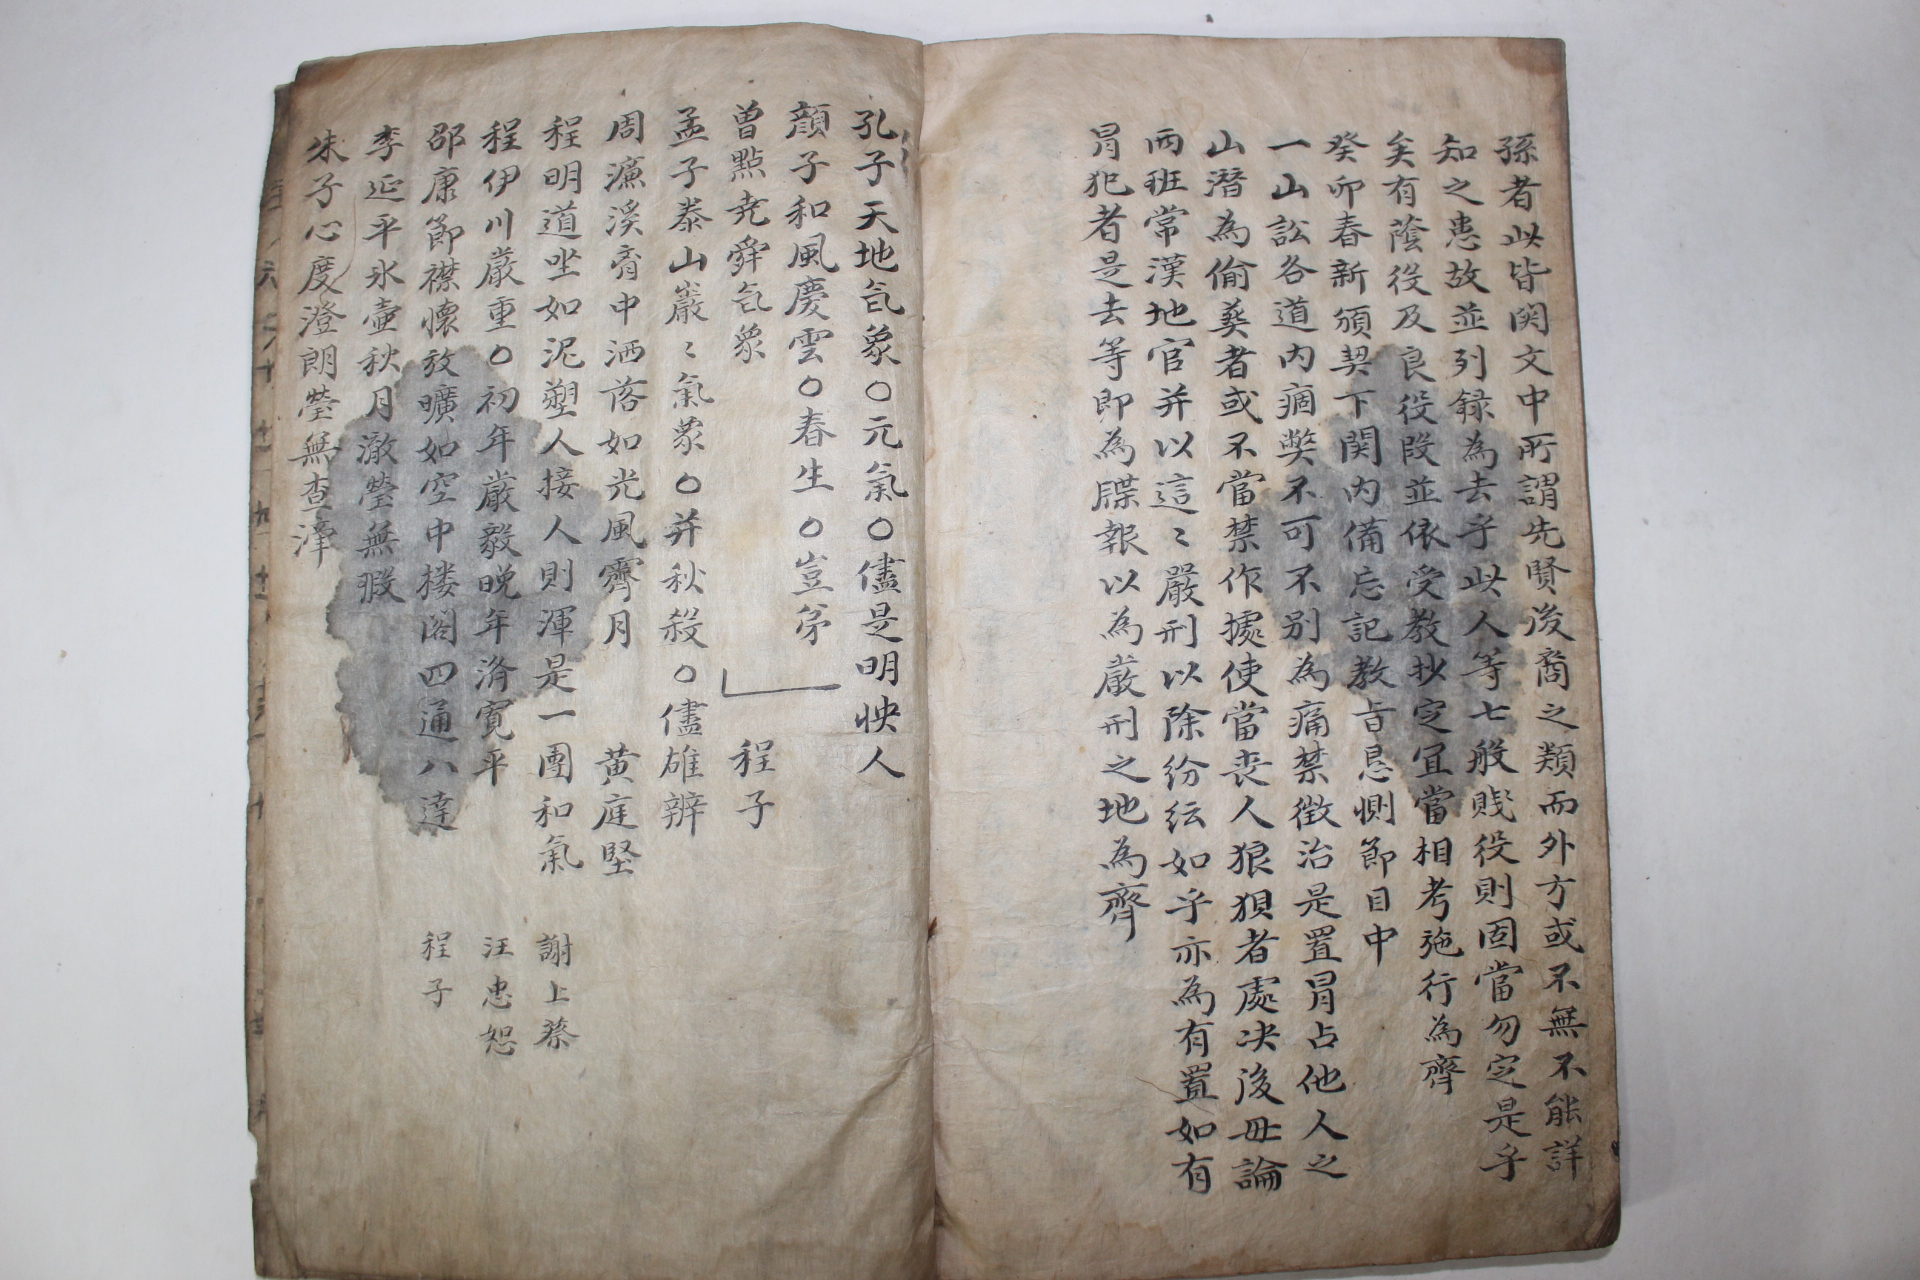 孫者此皆関文中所謂先賢後裔之類而外方或不無不能詳
知之患故並列録為去乎此人等七般賎役則固當勿定是乎
矣有蔭役及良役段並依受教抄定宜當相考施行為齊
癸卯春新頒契下関内備忘記教旨忌惻節目中
一山訟各道内痼弊不可不别為痛禁徴治是置冒占他人之
山潜為偷葬者或不當禁作據使當喪人狼狽者處决後毋論
两班常漢地官并以這〻嚴刑以除紛紜如乎亦為有置如有
冒犯者是去等即為牒報以為嚴刑之地為齊
孔子天地氣象○元氣○儘是明快人
顔子和風慶雲○春生○豈弟
曽點尭舜气象 程子
孟子泰山巖〻氣象○并秋殺○儘雄辨
周濂溪胷中洒落如光風霽月 黄庭堅
程明道坐如泥塑人接人則渾是一團和氣 謝上蔡
程伊川嚴重○初年嚴毅晩年済寛平 汪忠恕
邵康節襟懐放曠如空中楼閣四通八達 程子
李延平氷壷秋月澈瑩無瑕
朱子心度澄朗瑩無査滓